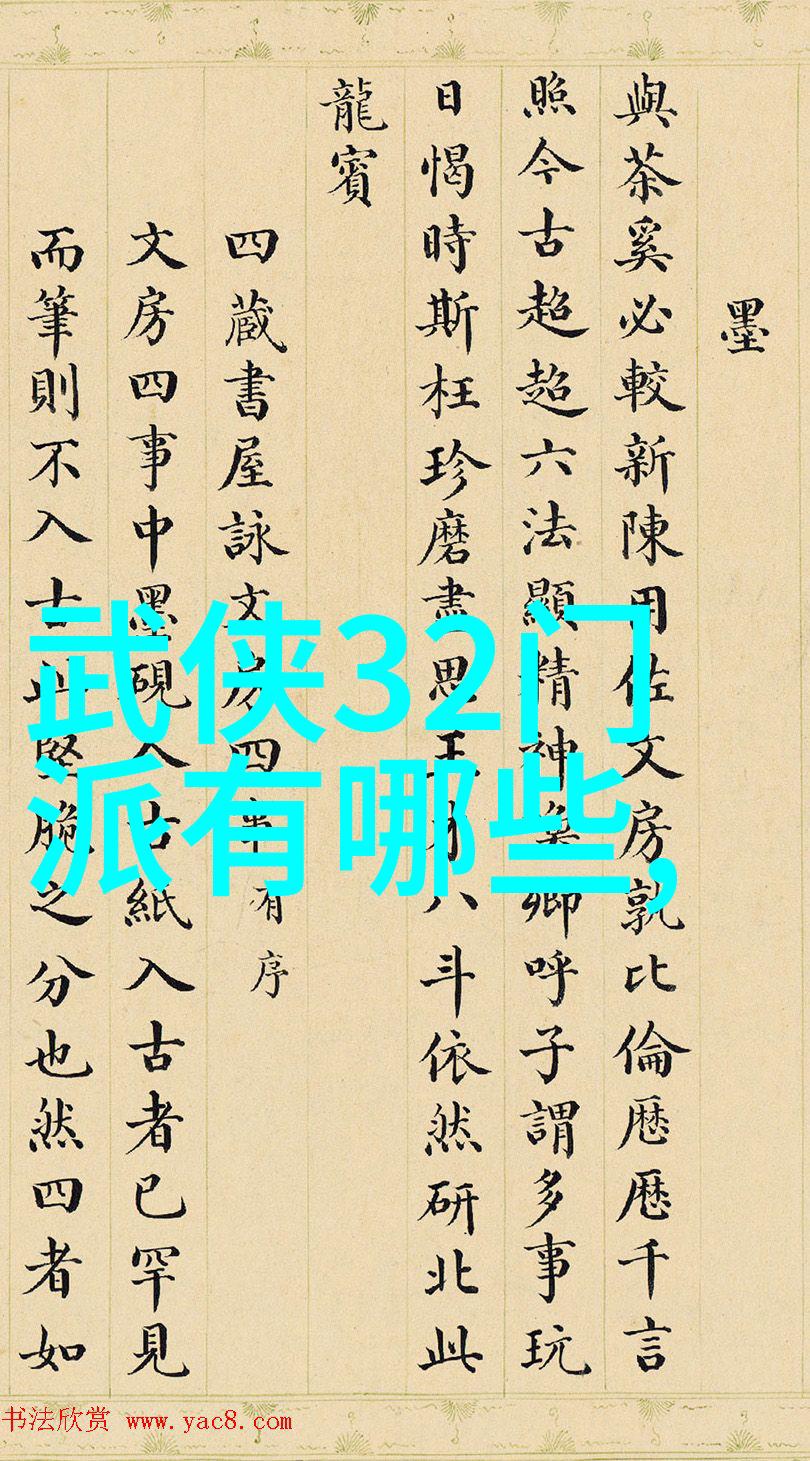 墨
與茶奚必較新陳用佐文房孰比倫歷歷千言
照今古超超六法顯精神
卿呼子謂多事玩
日愒時斯枉珍磨盡思王才八斗依然研北此
龍賓
四藏書屋詠文房四事有序
文房四事中墨硯入古紙入古者已罕見
而筆則不入古此堅脆之分也然四者如
武侠32门
派有哪些,
书法欣赏 www.yac8.com